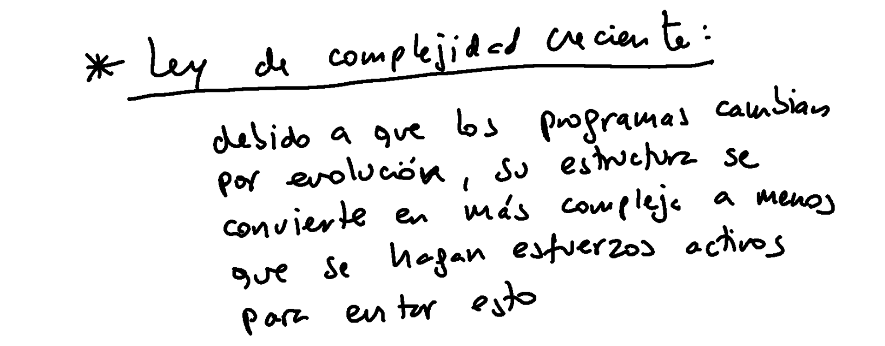 * Ley de complejidad creciente:
debido a que los programas cambian
por evolución, su estructura se
convierte en más compleja a menos
que se hagan esfuerzos activos
para evitar esto